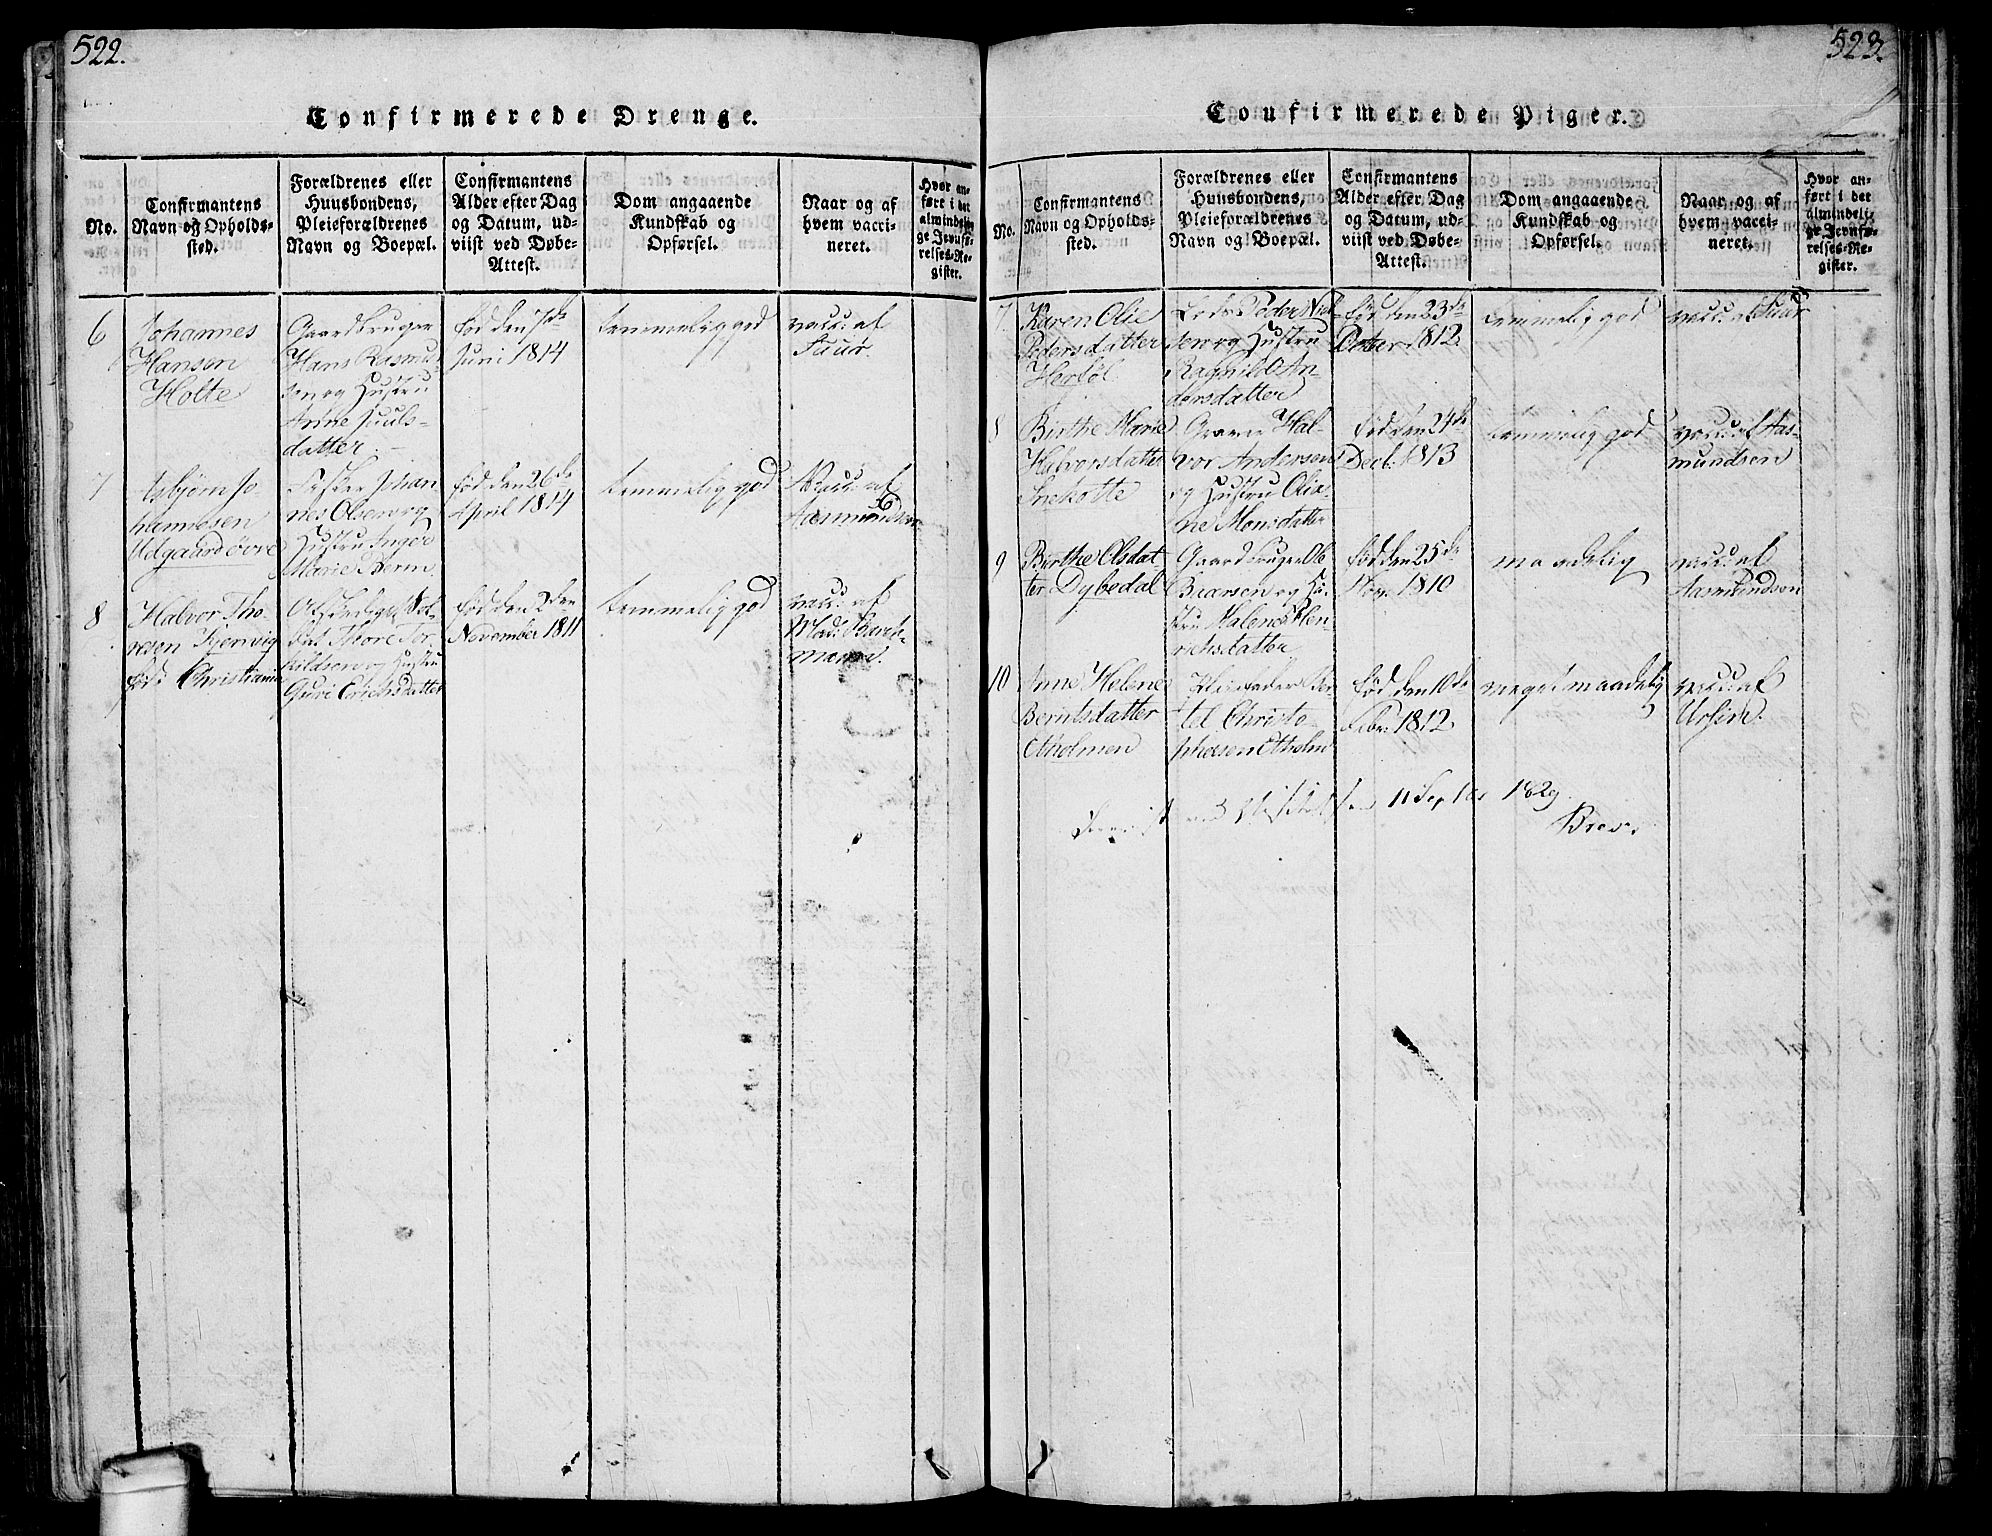 522.
Confirmerede Drenge.
No.
Confirmantens
Navn og Opholds-
sted.
Forældrenes eller
Huusbondens,
Pleieforældrenes
Navn og Boepæl.
Confirmantens
Alder efter Dag
og Datum, ud-
viist ved Døbe-
Attest.
Dom angaaende
Kundskab og
Opførsel.
Naar og af
hvem vacci-
neret.
Hvor an-
ført i det
almindeli-
ge Jevnfø-
relses-Re-
gister.
6
Johannes
Hansen
Holte
Gaardbruger
Hans Rasmu-
sen og Hustru
Anne Juuls-
datter
fød den 7de
Juni 1814
temmelig god
vacc: af
Tuur.
7
Asbjørn Jo-
hannesen
Udgaard øvre
Fisker Johan-
nes Olsen og
Hustru Inger
Marie
fød den 26de
April 1814
temmelig god
Vacc: af
Aasmundsen
8
Halvor Tho-
resen Kjerrvig
født Christiania
Sol-
dat Thore Tor-
kildsen og Hustru
Guri Erichsdatter
fød den 2den
November 1811
temmelig god
vacc: af
Mad:
523.
Confirmerede Piger.
No.
Confirmantens
Navn og Opholds-
sted.
Forældrenes eller
Huusbondens,
Pleieforældrenes
Navn og Boepæl.
Confirmantens
Alder efter Dag
og Datum, ud-
viist ved Døbe-
Attest.
Dom angaaende
Kundskab og
Opførsel.
Naar og af
hvem vacci-
neret.
Hvor an-
ført i det
almindeli-
ge Jevnfø-
relses-Re-
gister.
7
Karen Olie
Pedersdatter
Herføl
Lods Peder Niel-
sen og Hustru
Ragnild An-
dersdatter
fød den 23de
1812
temmelig god
vacc: af Tuur
8
Birthe Marie
Halvorsdatter
Snekotte
Hal-
vor Andersen
og Hustru Olia-
ne Monsdatter
fød den 24de
Decb: 1813
temmelig god
vacc: af Aas-
mundsen
9
Birthe Olsdat-
ter Dybedal
Gaardbruger Ole
og Hu-
stru Malene Hen-
richsdatter
fød den 25de
Nov: 1810
maadelig
vacc: af
Aasmundsen
10
Anne Helene
Berntsdatter
Etholmen
Pleiefader Ber-
tel Christo-
phersen Etholm
fød den 10de
Febr: 1812
meget maadelig
vacc: af
Ursin.
11 Septbr 1829.